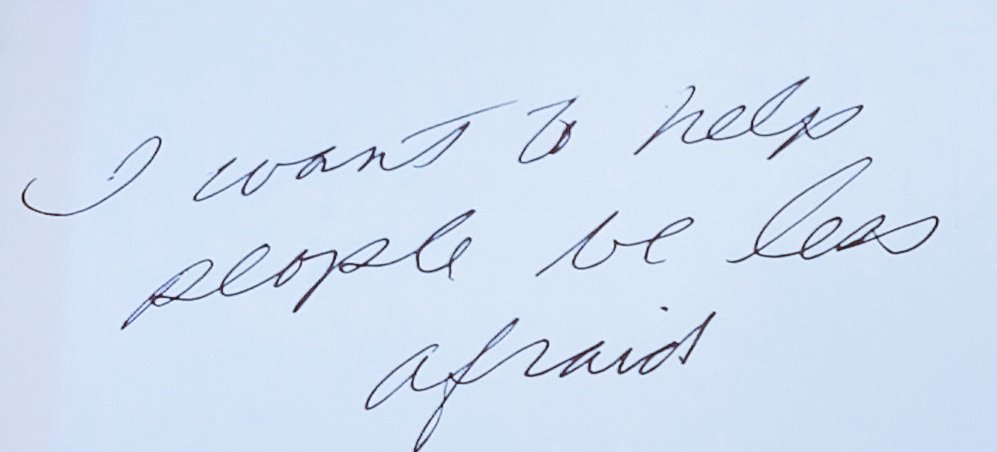 I want to help
people be less
afraid